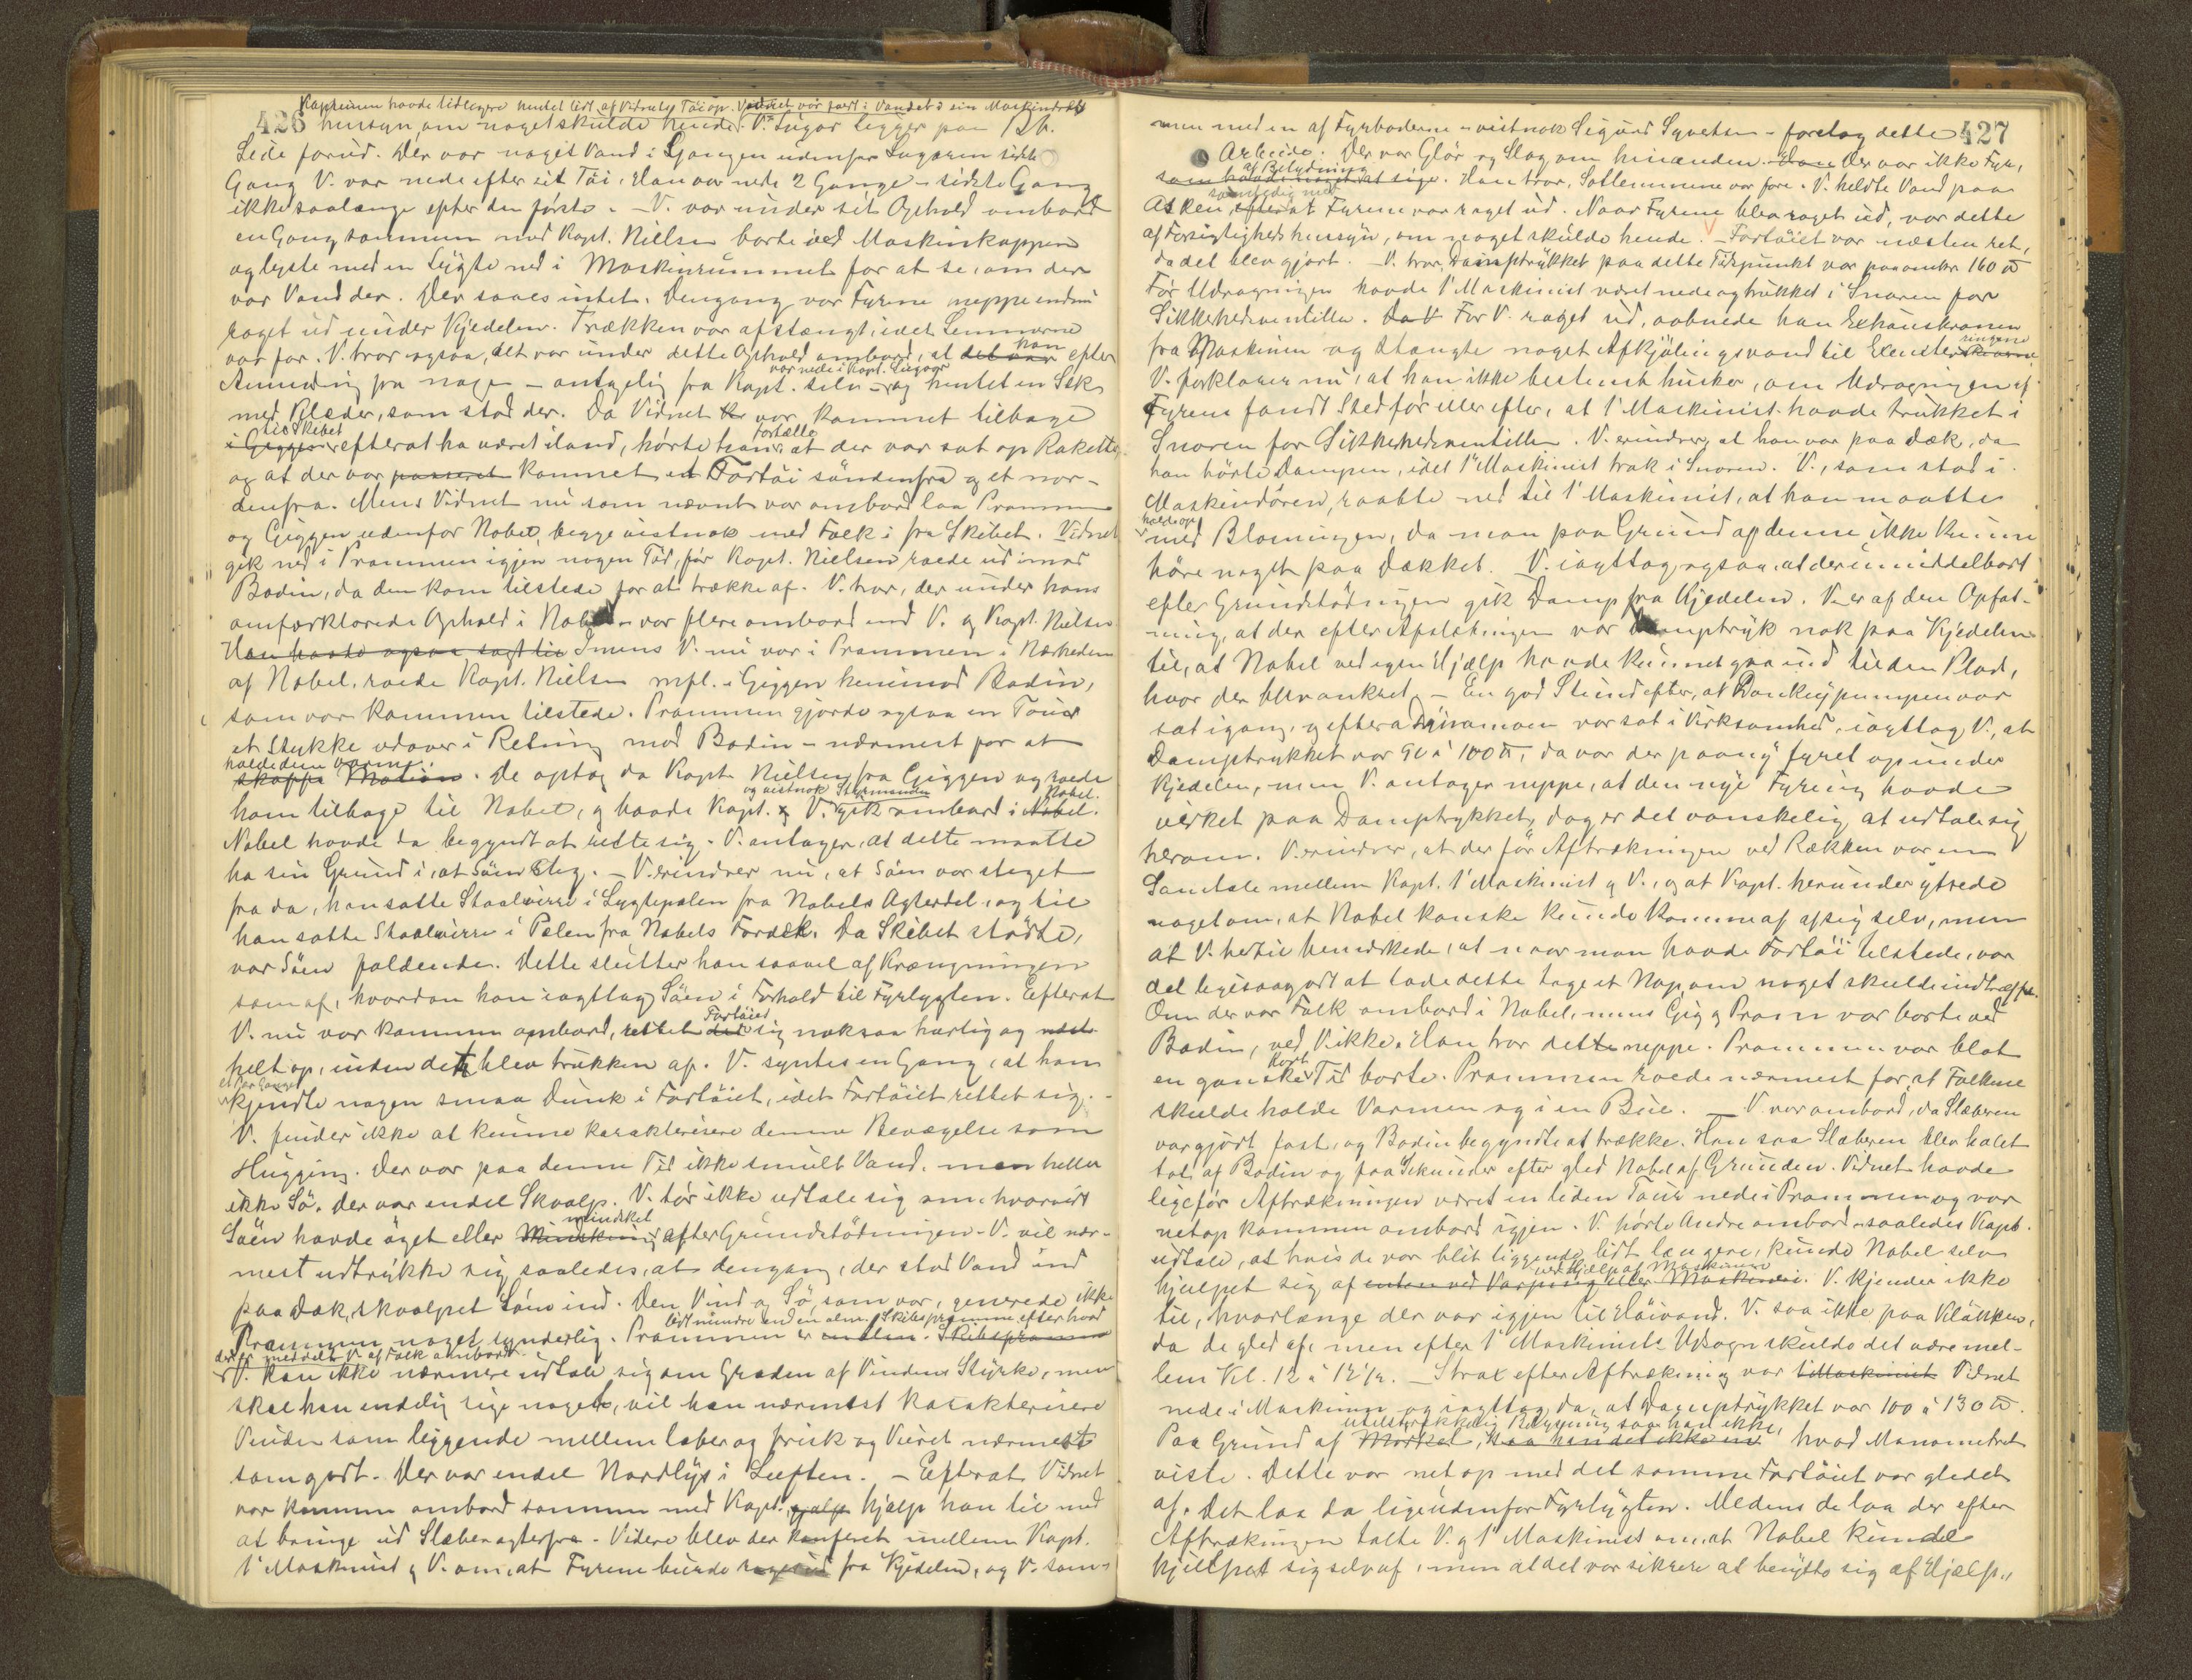 426
Kapteinen havde tidligere hentet lidt af Vidnets Töi op. Vidnet vör fært i Vandet i sin Maskindrægt
hensyn, om noget skulde hende. V.s Lugar ligger paa Bb.
Side forud. Der var noget Vand i Gangen udenfor Lugaren sidste
Gang V. var nede efter sit Töi. Han var nede 2 Gange – sidste Gang
ikke saalænge efter den første. – V. var under sit Ophold ombord
en Gang sammen med Kapt. Nielsen borte ved Maskinkappen
og lyste med en Lygte ned i Maskinrummet for at se, om der
var Vand der. Der saaes intet. Dengang var Fyrene neppe endnu
raget ud under Kjedelen. Trækken var afstængt, idet Lemmerne
var for. V. tror ogsaa, det var under dette Ophold ombord, at det var han efter
Anmodning fra nogen – antagelig fra Kapt. selv – var nede i Kapt. Lugar og hentet en Sæk
med Klæder, som stod der. Da Vidnet var kommet tilbage
i Giggen til Skibet efterat ha været iland, hørte han fortælle at der var sat op Raketter,
og at der var passeret kommet et Fartöi söndenfra og et nor-
denfra. Mens Vidnet nu som nævnt var ombord laa Prammen
og Giggen udenfor Nobel, begge vistnok med Folk i fra Skibet. Vidnet
gik ned i Prammen igjen nogen Tid, før Kapt. Nielsen roede ud imod
Bodin, da den kom tilstede for at trække af. V. tror, der under hans
omforklarede Ophold i Nobel – var flere ombord end V. og Kapt. Nielsen
Han havde ogsaa sagt til Imens V. nu var i Prammen i Nærheden
af Nobel, roede Kapt. Nielsen mfl. i Giggen henimod Bodin,
som var kommen tilstede. Prammen gjorde ogsaa en Tour
et Stykke udover i Retning mod Bodin – nærmest for at
skaffe Motion holde dem varme. De optog da Kapt. Nielsen fra Giggen og roede
ham tilbage til Nobel, og baade Kapt. og V. og vistnok Styrmanden gik ombord i Nobel. Nobel.
Nobel havde da begyndt at rette sig. V. antager, at dette maatte
ha sin Grund i, at Söen steg. – V. erindrer nu, at Söen var steget
fra da, han satte Staalwire i Lygtepælen fra Nobels Agterdel, og til
han satte Staalwire i Pælen fra Nobels Fordæk. Da Skibet stödte,
var Söen faldende. Dette slutter han saavel af Krængningen
som af, hvordan han iagttog Söen i Forhold til Fyrlygten. Efterat
V. nu var kommen ombord, rettet det Fartöiet sig noksaa hurtig og
helt op, inden det blev trukken af. V. syntes en Gang, at han
et Par Gange kjendte nogen smaa Dunk i Fartöiet, idet Fartöiet rettet sig. –
V. finder ikke at kunne karakterisere denne Bevægelse som
Hugging. Der var paa denne Tid ikke smult Vand, men heller
ikke Sö. Der var endel Skvalp. V. tör ikke udtale sig om hvorvidt
Söen havde öget eller Minskning mindsket efter Grundstödningen. V. vil nær-
mest udtrykke sig saaledes, at dengang, der stod Vand ind
paa Dæk, skvalpet Söen ind. Den Vind og Sö, som var, generede ikke
Prammen noget synderlig. Prammen er en alm. Skibspramme lidt mindre end en alm. Skibspramme efter hvad
der er meddelt V. af Folk ombord.
V. kan ikke nærmere udtale sig om Graden af Vindens Styrke, men
skal han endelig sige noget, vil han nærmest karakterisere
Vinden som liggende mellem laber og frisk og Veiret nærmest
som godt. Der var endel Nordlys i Luften. – Efterat Vidnet
var kommen ombord sammen med Kapt. hjalp hjalp han til med
at bringe ud Slæber agterfra. Videre blev der konferert mellem Kapt.
1' Maskinist og V. om, at Fyrene burde rages ud fra Kjedelen, og V. sam-
427
men med en af Fyrböderne – vistnok Sigurd Syvertsen – foretog dette
Arbeide. Der var Glör og Slag om hinanden. Der var ikke Fyr,
som havde noget at sige af Betydning. Han tror, Sotlemmene var fore. V. heldte Vand paa
Asken efterat samtidig med Fyrene var raget ud. Naar Fyrene blev raget ud, var dette
af Forsigtighedshensyn, om noget skulde hende. – Fartöiet var næsten ret,
da det blev gjort. V. tror, Damptrykket paa dette Tidspunkt var paa omkr. 160 ℔
Før Udragningen havde 1' Maskinist været nede og trukket i Snoren for
Sikkerhedsventillen. Før V. raget ud, aabnede han Exhauskranen
fra Maskinen og stængte noget Afkjölingsvand til
V. forklarer nu, at han ikke bestemt husker, om Udragningen af
Fyrene fandt Sted før eller efter, at 1' Maskinist havde trukket i
Snoren for Sikkerhedsventillen. V. erindrer, at han var paa Dæk, da
han hörte Dampen, idet 1' Maskinist trak i Snoren. V., som stod i
Maskindören, raabte ned til 1' Maskinist, at han maatte
holde op med Blæsningen, da man paa Grund af denne ikke kunne
höre noget paa Dækket. V. iagttog ogsaa, at der umiddelbart
efter Grundstödningen gik Damp fra Kjedelen. V. er af den Opfat-
ning, at der efter Afslækningen var Damptryk nok paa Kjedelen
til, at Nobel ved egen Hjælp havde kunnet gaa ind til den Plads,
hvor den blev ankret. – En god Stund efter, at Donkeypumpen var
sat igang, og efterat Dynamoen var sat i Virksomhed, iagttog V., at
Damptrykket var 90 à 100 ℔, da var der paany fyret op under
Kjedelen, men V. antager neppe, at den nye Fyring havde
virket paa Damptrykket, dog er det vanskelig at udtale sig
herom. V. erindrer, at der før Aftrækningen ved Rækken var en
Samtale mellem Kapt. 1' Maskinist og V., og at Kapt. herunder ytrede
noget om, at Nobel kanske kunde komme af af sig selv, men
at V. hertil bemærkede, at naar man havde Fartöi tilstede, var
det ligesaagodt at lade dette tage et Nap, om noget skulde indtræffe.
Om der var Folk ombord i Nobel, mens Gig og Pram var borte ved
Bodin, ved V. ikke. Han tror dette neppe. Prammen var blot
en ganske kort Tid borte. Prammen roede nærmest for, at Folkene
skulde holde Varmen og i en Bue. – V. var ombord, da Slæberen
var gjort fast, og Bodin begyndte at trække. Han saa Slæberen blev halet
tot af Bodin og faa Sekunder efter gled Nobel af Grunden. Vidnet havde
lige før Aftrækningen været en liden Tour nede i Prammen og var
netop kommen ombord igjen. V. hørte Andre ombord – saaledes Kapt.
udtale, at hvis de var blit liggende lidt længere, kunde Nobel selv
hjulpet sig af enten ved Varping eller Maskinen ved Hjælp af Maskinen. V. kjender ikke
til, hvorlænge der var igjen til Höivand. V. saa ikke paa Klokken,
da de gled af, men efter 1' Maskinists Udsagn skulde det være mel-
lem Kl. 12 à 12½. – Strax efter Aftrækning var 1' Maskinist Vidnet
nede i Maskinen og iagttog da, at Damptrykket var 100 à 130 ℔.
Paa Grund af Mørket, saa han det ikke utilstrækkelig Belysning saa han ikke, hvad Manometret
viste. Dette var netop med det samme Fartöiet var gledet
af. Det laa da lige udenfor Fyrlygten. Medens de laa der efter
Aftrækningen talte V. og 1' Maskinist om, at Nobel kunde
hjulpet sig selv af, men at det var sikrere at benytte sig af Hjælp.